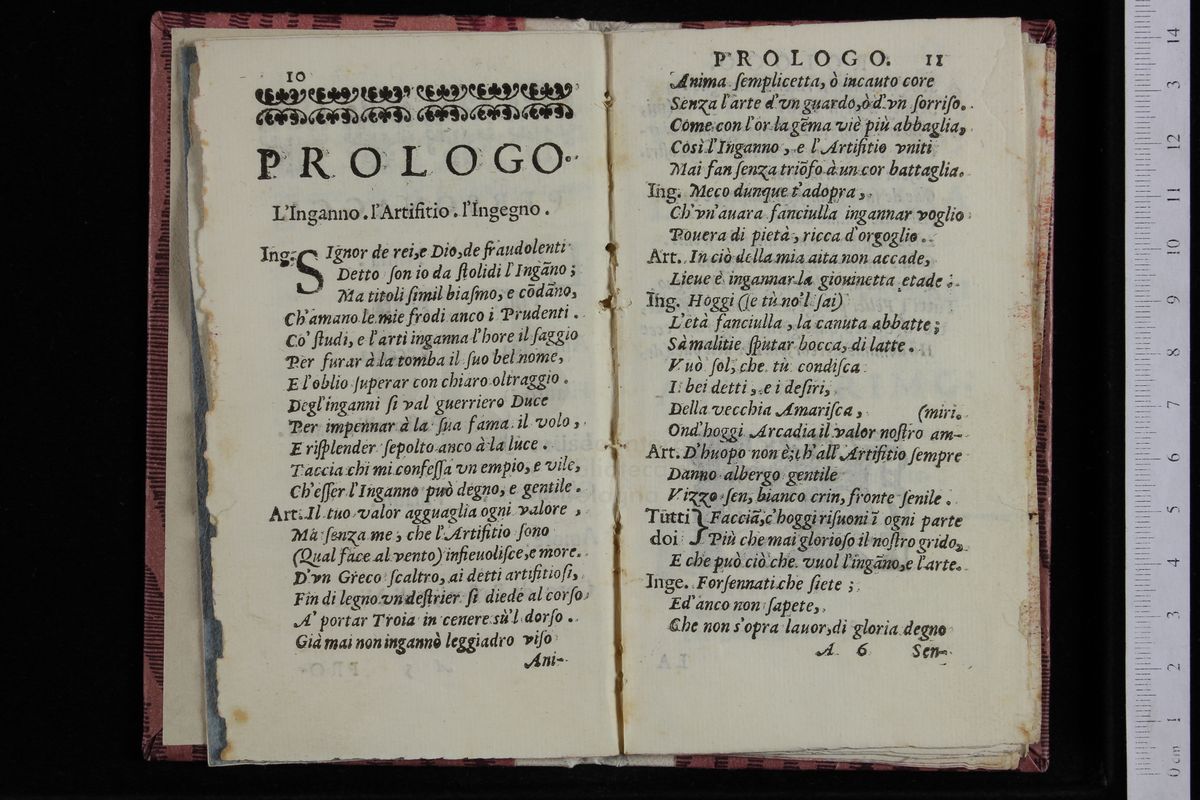 10
PROLOGO.
L'Inganno. l'Artifitio. l'Ingegno.
Ing. SIgnor de rei, e Dio, de fraudolenti
Detto ſon io da ſtolidi l'Ingāno;
Ma titoli ſimil biaſmo, e cōdāno,
Ch'amano le mie frodi anco i Prudenti.
Co' ſtudi, e l'arti inganna l'hore il ſaggio
Per furar à la tomba il ſuo bel nome,
E l'oblio ſuperar con chiaro oltraggio.
Degl'inganni ſi val guerriero Duce
Per impennar à la ſua fama il volo,
E riſplender ſepolto anco à la luce.
Taccia chi mi confeſſa vn empio, e vile,
Ch'eſſer l'Inganno può degno, e gentile.
Art. Il tuo valor agguaglia ogni valore,
Mà ſenza me, che l'Artifitio ſono
(Qual face al vento) infieuoliſce, e more.
D'vn Greco ſcaltro, ai detti artifitioſi,
Fin di legno vn deſtrier ſi diede al corſo
A' portar Troia in cenere sù'l dorſo.
Già mai non ingannò leggiadro viſo
Ani-
PROLOGO. 11
Anima ſemplicetta, ò incauto core
Senza l'arte d'vn guardo, ò d'vn ſorriſo.
Come con l'or la gēma viè più abbaglia,
Così l'Inganno, e l'Artifitio vniti
Mai fan ſenza triōfo à un cor battaglia.
Ing. Meco dunque t'adopra,
Ch'vn'auara fanciulla ingannar voglio
Pouera di pietà, ricca d'orgoglio.
Art. In ciò della mia aita non accade,
Lieue è ingannar la giouinetta etade.
Ing. Hoggi (ſe tù no'l ſai)
L'età fanciulla, la canuta abbatte;
Sà malitie ſputar bocca, di latte.
Vuò ſol, che tù condiſca
I bei detti, e i deſiri,
Della vecchia Amariſca, (miri.
Ond'hoggi Arcadia il valor noſtro am-
Art. D'huopo non è; ch'all'Artifitio ſempre
Danno albergo gentile
Vizzo ſen, bianco crin, fronte ſenile.
Tutti } Facciā, c'hoggi riſuoni ī ogni parte
doi } Più che mai glorioſo il noſtro grido,
E che può ciò che vuol l'ingāno, e l'arte.
Inge. Forſennati che ſiete;
Ed'anco non ſapete,
Che non s'opra lauor, di gloria degno
A 6 Sen-